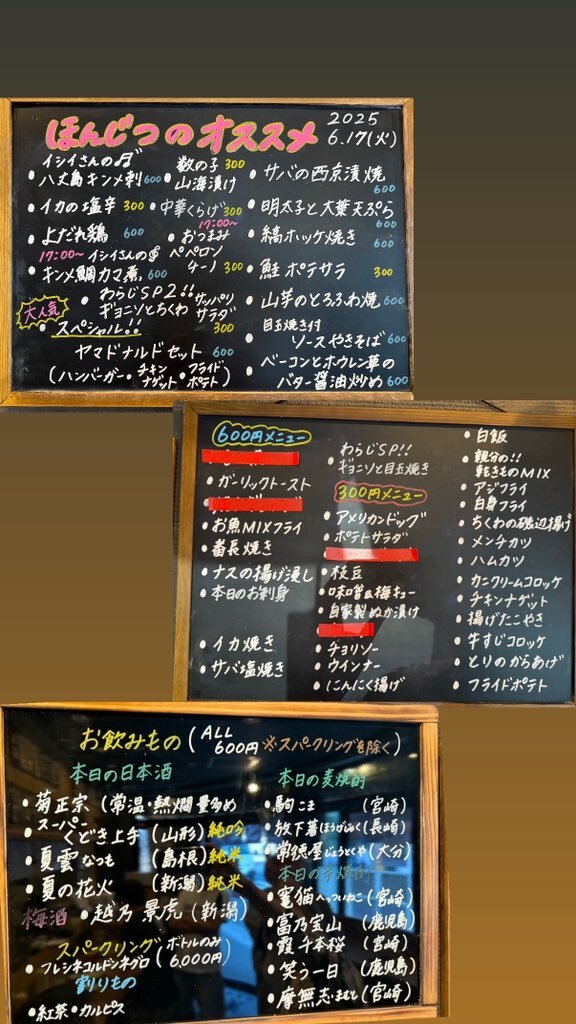 ほんじつのオススメ
2025
6.17(火)
イシイさんの
・八丈島キンメ刺 600
・イカの塩辛 300
・よだれ鶏 600
17:00〜 イシイさんの
・キンメ鯛カマ煮 600
数の子 300
・山海漬け
・中華くらげ 300
17:00〜
・おつまみ
ペペロン
チーノ 300
大人気
・わらじSP2!!
ギョニソとちくわ
サッパリ
サラダ
300
・スペシャル!!
ヤマドナルドセット 600
(ハンバーガー・チキンナゲット・フライドポテト)
・サバの西京漬焼 600
・明太子と大葉天ぷら 600
・縞ホッケ焼き 600
・鮭ポテサラ 300
・山芋のとろふわ焼 600
・目玉焼き付
ソースやきそば 600
・ベーコンとホウレン草の
バター醤油炒め 600
600円メニュー
・ガーリックトースト
・お魚MIXフライ
・番長焼き
・ナスの揚げ浸し
・本日のお刺身
・イカ焼き
・サバ塩焼き
・わらじSP!!
ギョニソと目玉焼き
300円メニュー
・アメリカンドッグ
・ポテトサラダ
・枝豆
・味噌&梅キュー
・自家製ぬか漬け
・チョリソー
・ウインナー
・にんにく揚げ
・白飯
・親分の!!
乾きものMIX
・アジフライ
・白身フライ
・ちくわの磯辺揚げ
・メンチカツ
・ハムカツ
・カニクリームコロッケ
・チキンナゲット
・揚げたこやき
・牛すじコロッケ
・とりのからあげ
・フライドポテト
お飲みもの(ALL 600円 ※スパークリングを除く)
本日の日本酒
・菊正宗(常温・熱燗量多め
・スーパー
くどき上手(山形)純吟
・夏雲なつも(島根)純米
・夏の花火(新潟)純米
梅酒・越乃景虎(新潟)
スパークリング ボトルのみ
・フレシネコルドンネグロ(6,000円)
割りもの
・紅茶・カルピス
本日の麦焼酎
・駒こま(宮崎)
・放下著ほうげじゃく(長崎)
・常徳屋じょうとくや(大分)
本日の芋焼酎
・竃猫へっついねこ(宮崎)
・富乃宝山(鹿児島)
・霞千本桜(宮崎)
・笑う一日(鹿児島)
・摩無志まむし(宮崎)